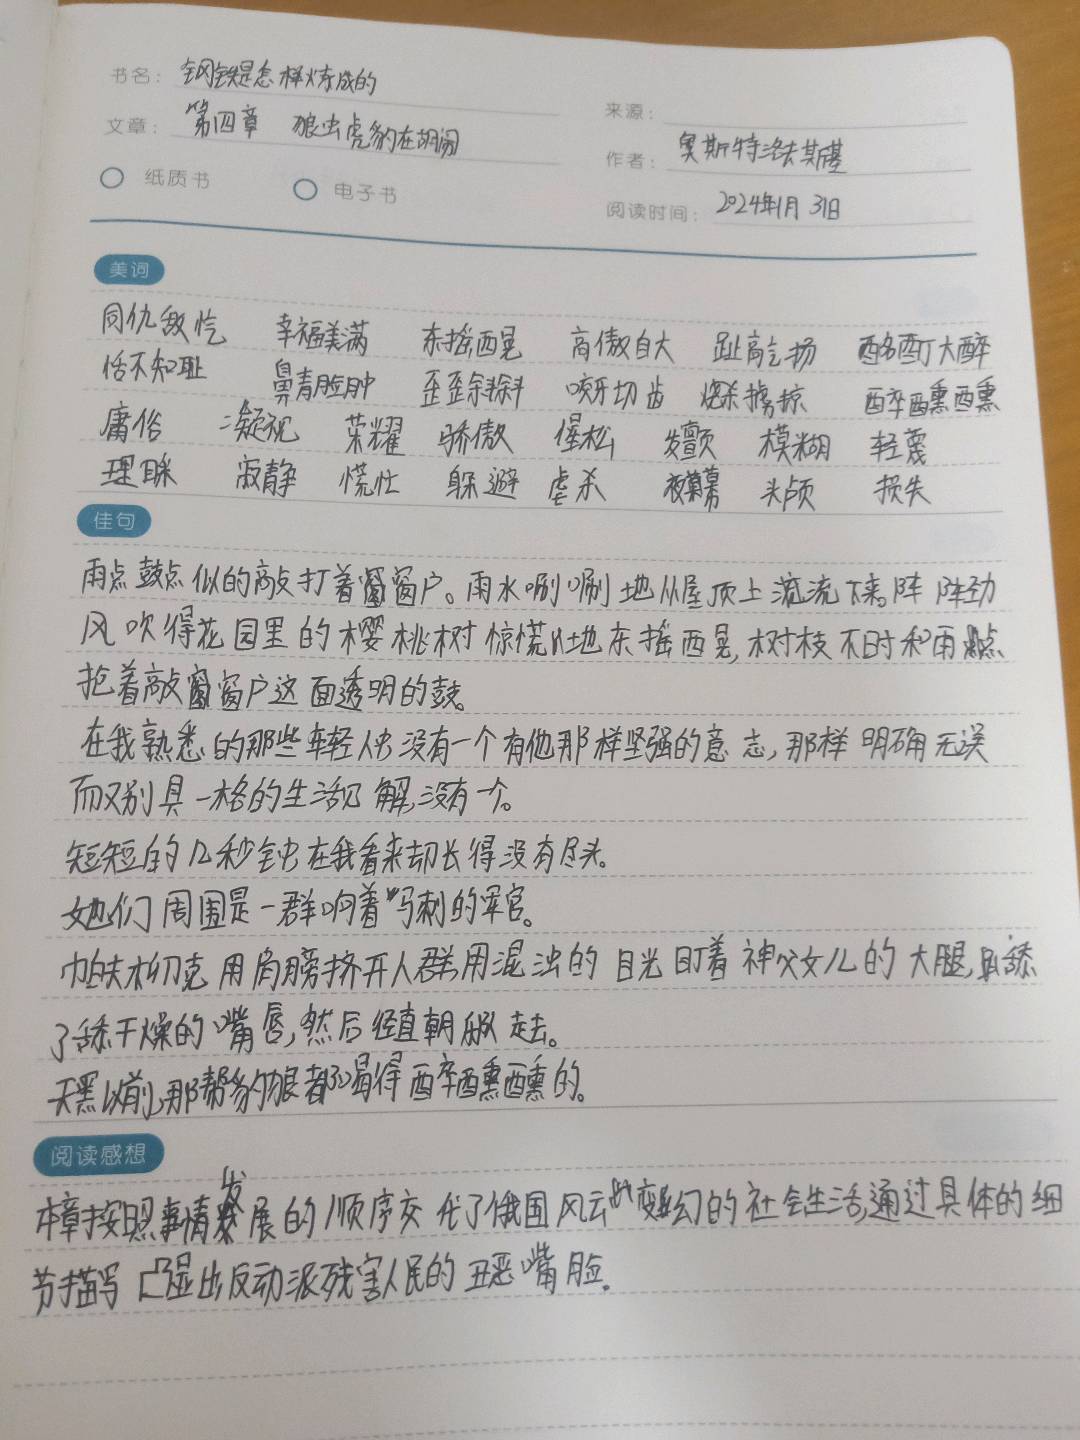 书名：钢铁是怎样炼成的
来源：
文章：第四章 狼虫虎豹在胡闹
作者：奥斯特洛夫斯基
纸质书 电子书
阅读时间：2024年1月31日
美词
同仇敌忾 幸福美满 东摇西晃 高傲自大 趾高气扬 酩酊大醉
恬不知耻 鼻青脸肿 歪歪斜斜 咬牙切齿 烧杀掳掠 醉醺醺
庸俗 凝视 荣耀 骄傲 惺松 发颤 模糊 轻蔑
理睬 寂静 慌忙 躲避 虐杀 夜幕 头颅 损失
佳句
雨点鼓点似的敲打着窗户。雨水唰唰地从屋顶上流下来,阵阵劲
风吹得花园里的樱桃树惊慌地东摇西晃,树枝不时和雨点
抢着敲窗户这面透明的鼓。
在我熟悉的那些年轻人中没有一个有他那样坚强的意志,那样明确无误
而又别具一格的生活见解,没有一个。
短短的几秒钟在我看来却长得没有尽头。
她们周围是一群响着马刺的军官。
帕夫柳克用肩膀挤开人群,用混浊的目光盯着神父女儿的大腿,舔
了舔干燥的嘴唇,然后径直朝 走去。
天黑以前,那帮豹狼都喝得醉醺醺的。
阅读感想
本章按照事情发展的顺序交代了俄国风云变幻的社会生活,通过具体的细
节描写凸显出反动派残害人民的丑恶嘴脸。